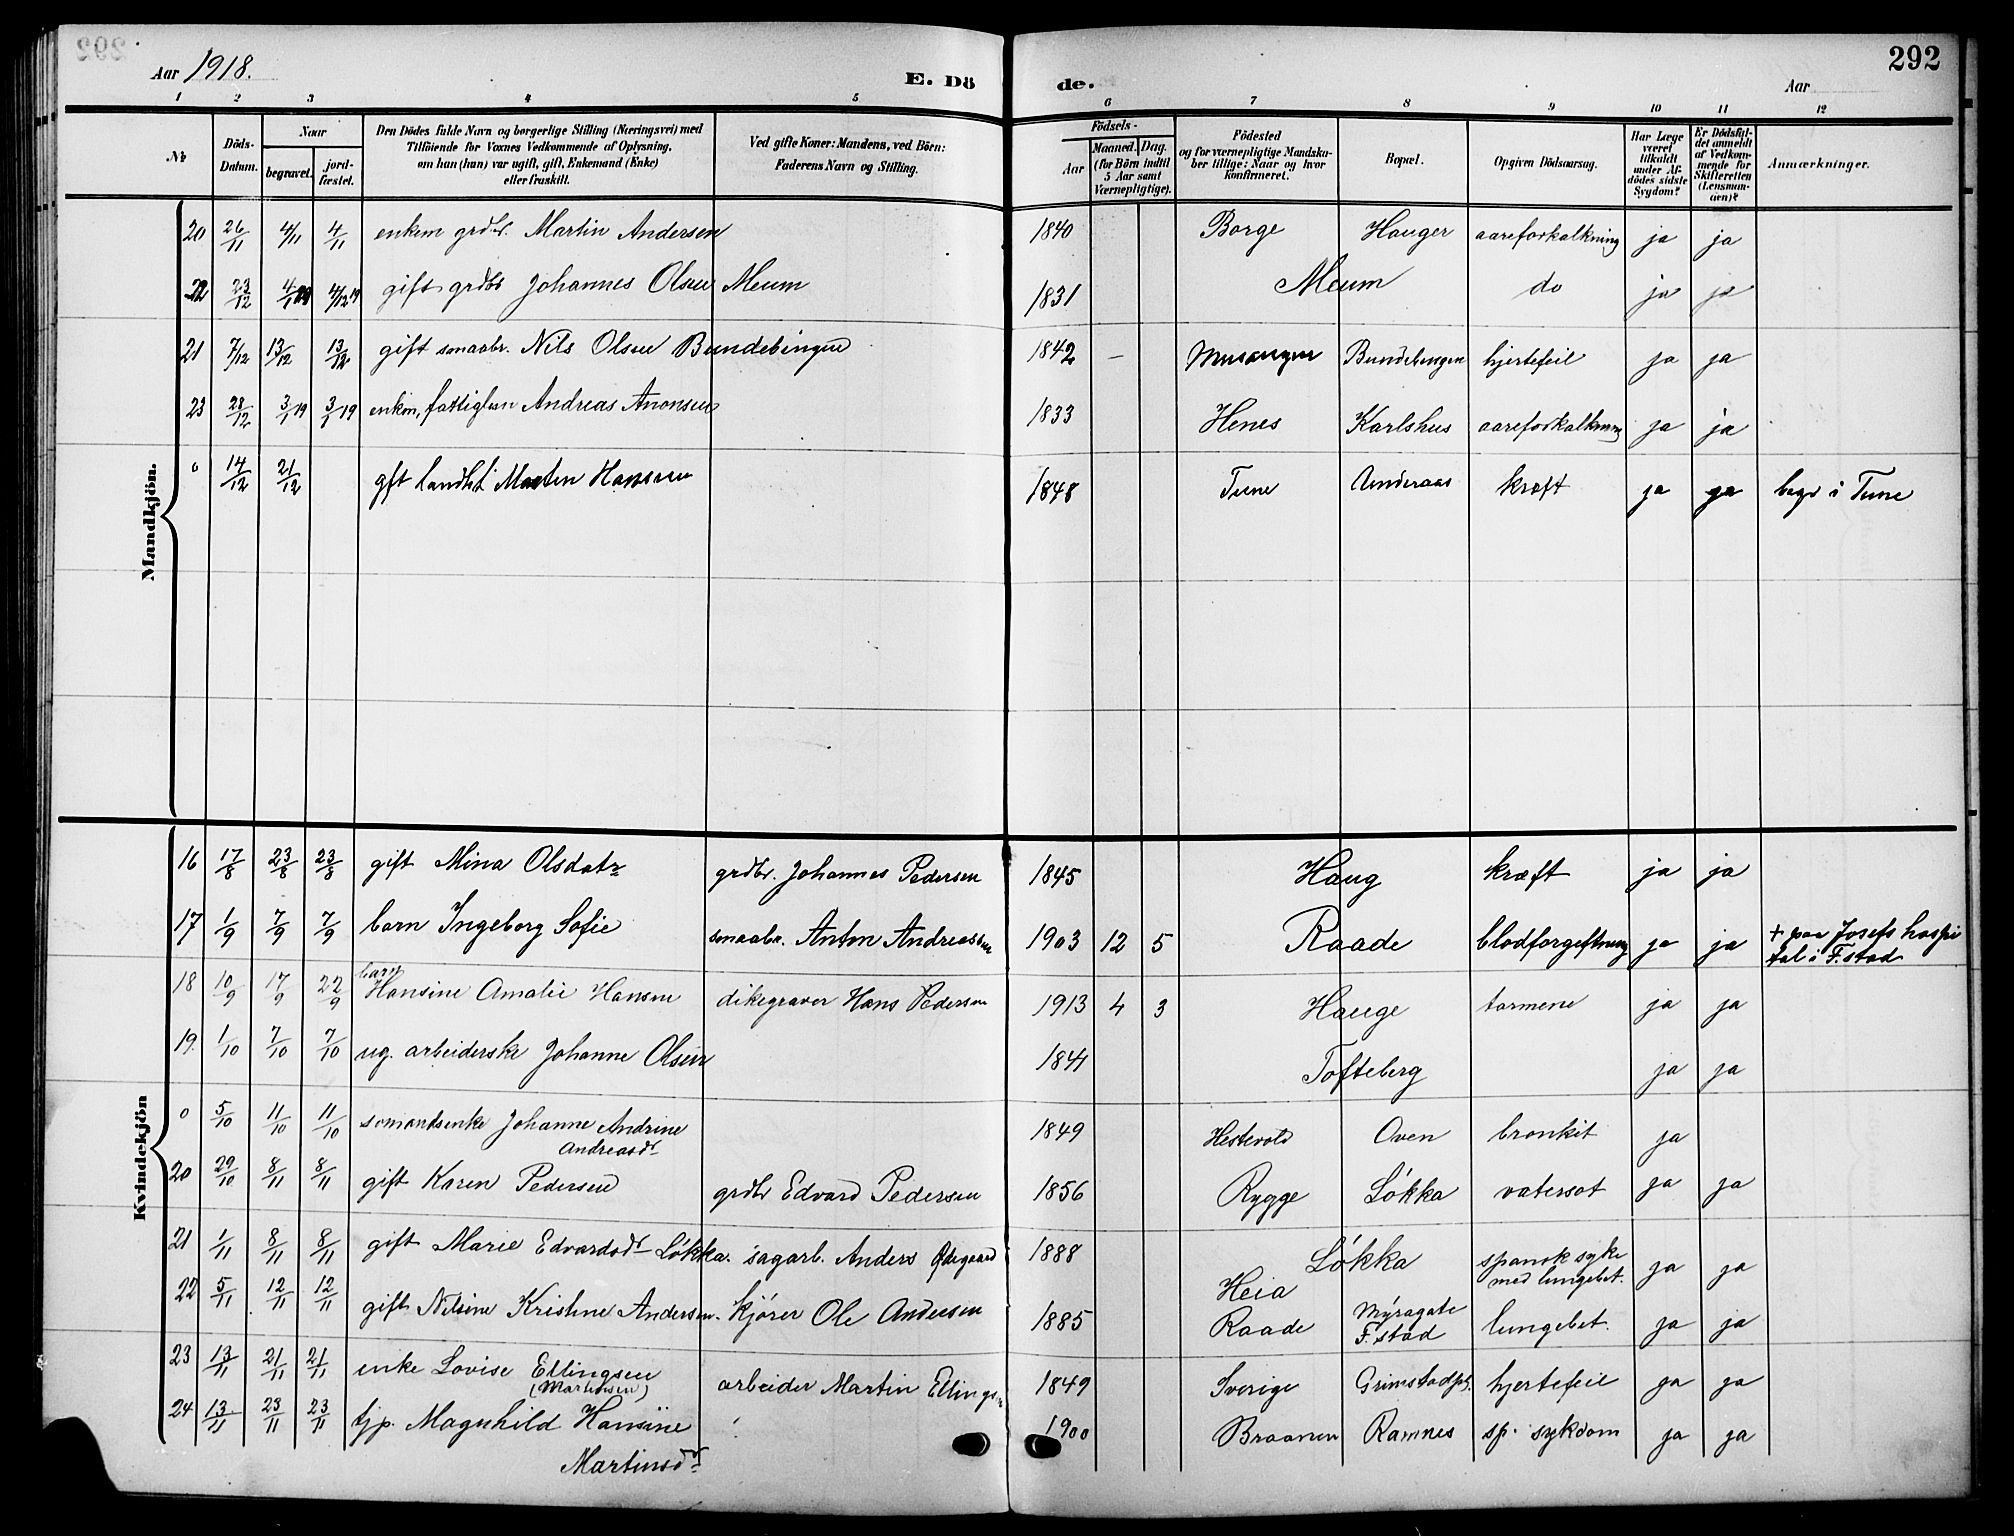 292
Aar 1918.
E. Dö
de.
Aar
292
1 2 3 4 5 6 7 8 9 10 11 12
No
Döds-Datum.
Naar
begravet.
jord-fæstet.
Den Dödes fulde Navn og borgerlige Stilling (Næringsvei) med
Tilföiende for Voxnes Vedkommende af Oplysning,
om han (hun) var ugift, gift, Enkemand (Enke)
eller fraskilt.
Ved gifte Koner: Mandens, ved Börn:
Faderens Navn og Stilling.
Födsels-
Aar
Maaned. Dag.
(for Börn indtil
5 Aar samt
Værnepligtige).
Födested
og for værnepligtige Mandska-
ber tillige: Naar og hvor
konfirmeret.
Bopæl.
Opgiven Dödsaarsag.
Har Læge
været
tilkaldt
under Af-
dödes sidste
Sygdom?
Er Dödsfal-
det anmeldt
af Vedkom-
mende for
Skifteretten
(Lensman-
den)?
Anmærkninger.
Mandkjön.
20 26/11 4/11 4/11 enkem grdbr. Martin Andersen 1840 Borge Hauger aareforkalkning ja ja
22 23/12 4/1 19 4/12 19 gift grdbr Johannes Olsen Meum 1831 Meum do ja ja
21 7/12 13/12 13/12 gift smaabr. Nils Olsen Bundebingen 1842 — Bundebingen hjertefeil ja ja
23 28/12 3/1 19 3/1 19 enkm, fattiglem Andreas Aronsen 1833 Henes Karlshus aareforkalkning ja ja
0 14/12 21/12 gft landh. Martin Hansen 1848 Tune Anderaas kræft ja ja begr i Tune
Kvindekjön
16 17/8 23/8 23/8 gift Mina Olsdatr grdbr. Johannes Pedersen 1845 Haug kræft ja ja
17 1/9 7/9 7/9 barn Ingeborg Sofie smaabr. Anton Andreassen 1903 12 5 Raade blodforgiftning ja ja + paa Josefs hospi
tal i F.stad
18 10/9 17/9 22/9 barn Hansine Amalie Hansen dikegraver Hans Pedersen 1913 4 3 Hauge tarmene ja ja
19. 1/10 7/10 7/10 ug. arbeiderske Johanne Olsen 1841 Tofteberg ja ja
0 5/10 11/10 11/10 sømandsenke Johanne Andrine
Andreasdr 1849 Hestevold Oven bronkit ja
20 29/10 8/11 8/11 gift Karen Pedersen grdbr Edvard Pedersen 1856 Rygge Løkka vatersot ja ja
21 1/11 8/11 8/11 gift Marie Edvardsdr Løkka. sagarb. Anders Ødegaard 1888 Løkka spansk syke
med lungebet. ja ja
22 5/11 12/11 12/11 gift Nilsine Kristine Andersen. kjører Ole Andersen 1885 Heia
Raade Myragate
F.stad lungebet. ja ja
23 13/11 21/11 21/11 enke Lovise Ellingsen
(Martinsen) arbeider Martin Ellingsen 1849 Sverige Grimstadpl. hjertefeil ja ja
24 13/11 23/11 23/11 tjp. Magnhild Hansine
Martinsdr 1900 Braanen Ramnes sp. sykdom ja ja